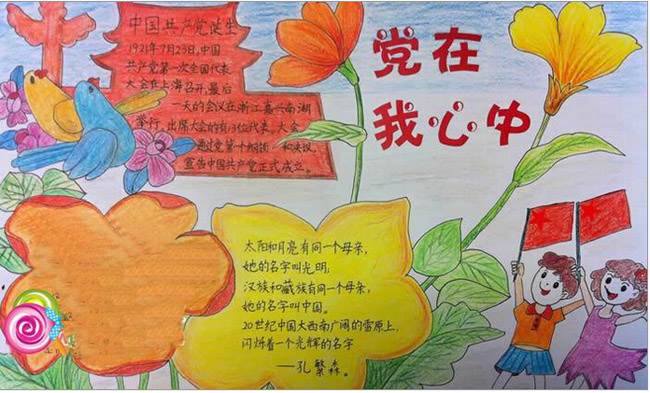 党在
我心中
中国共产党诞生
1921年7月23日,中国
共产党第一次全国代表
大会在上海召开,最后
一天的会议在浙江嘉兴南湖
举行,出席大会的有13位代表,大会
通过党第一个纲领和决议,
宣告中国共产党正式成立。
太阳和月亮有同一个母亲,
她的名字叫光明,
汉族和藏族有同一个母亲,
她的名字叫中国。
20世纪中国大西南广阔的雪原上,
闪烁着一个光辉的名字
——孔繁森。